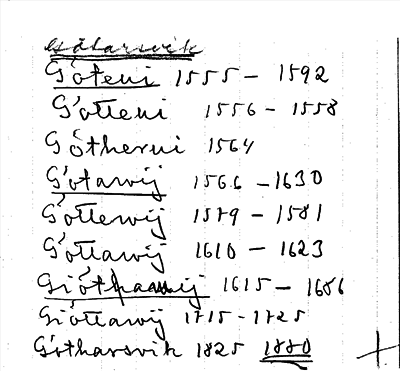 Góteni 1555 - 1592
Gótteni 1556 - 1558
Gótherni 1564
Gótawij 1566 - 1630
Góttewij 1579 - 1581
Góttawij 1610 - 1623
1615 - 1686
Gióttawij 1715 - 1725
Gótharsvik 1825 1880